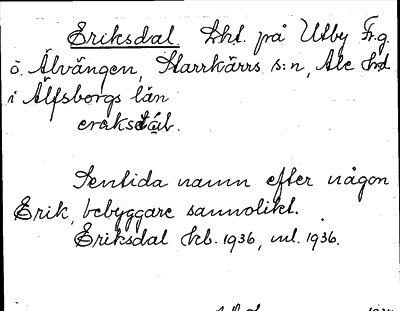 Eriksdal. Lht. på Utby Frg.
ö. Älvängen, Starrkärrs s:n, Ale hd
i Älfsborgs län
Sentida namn efter någon
Erik, bebyggare sannolikt.
Eriksdal kb. 1936, ml. 1936.